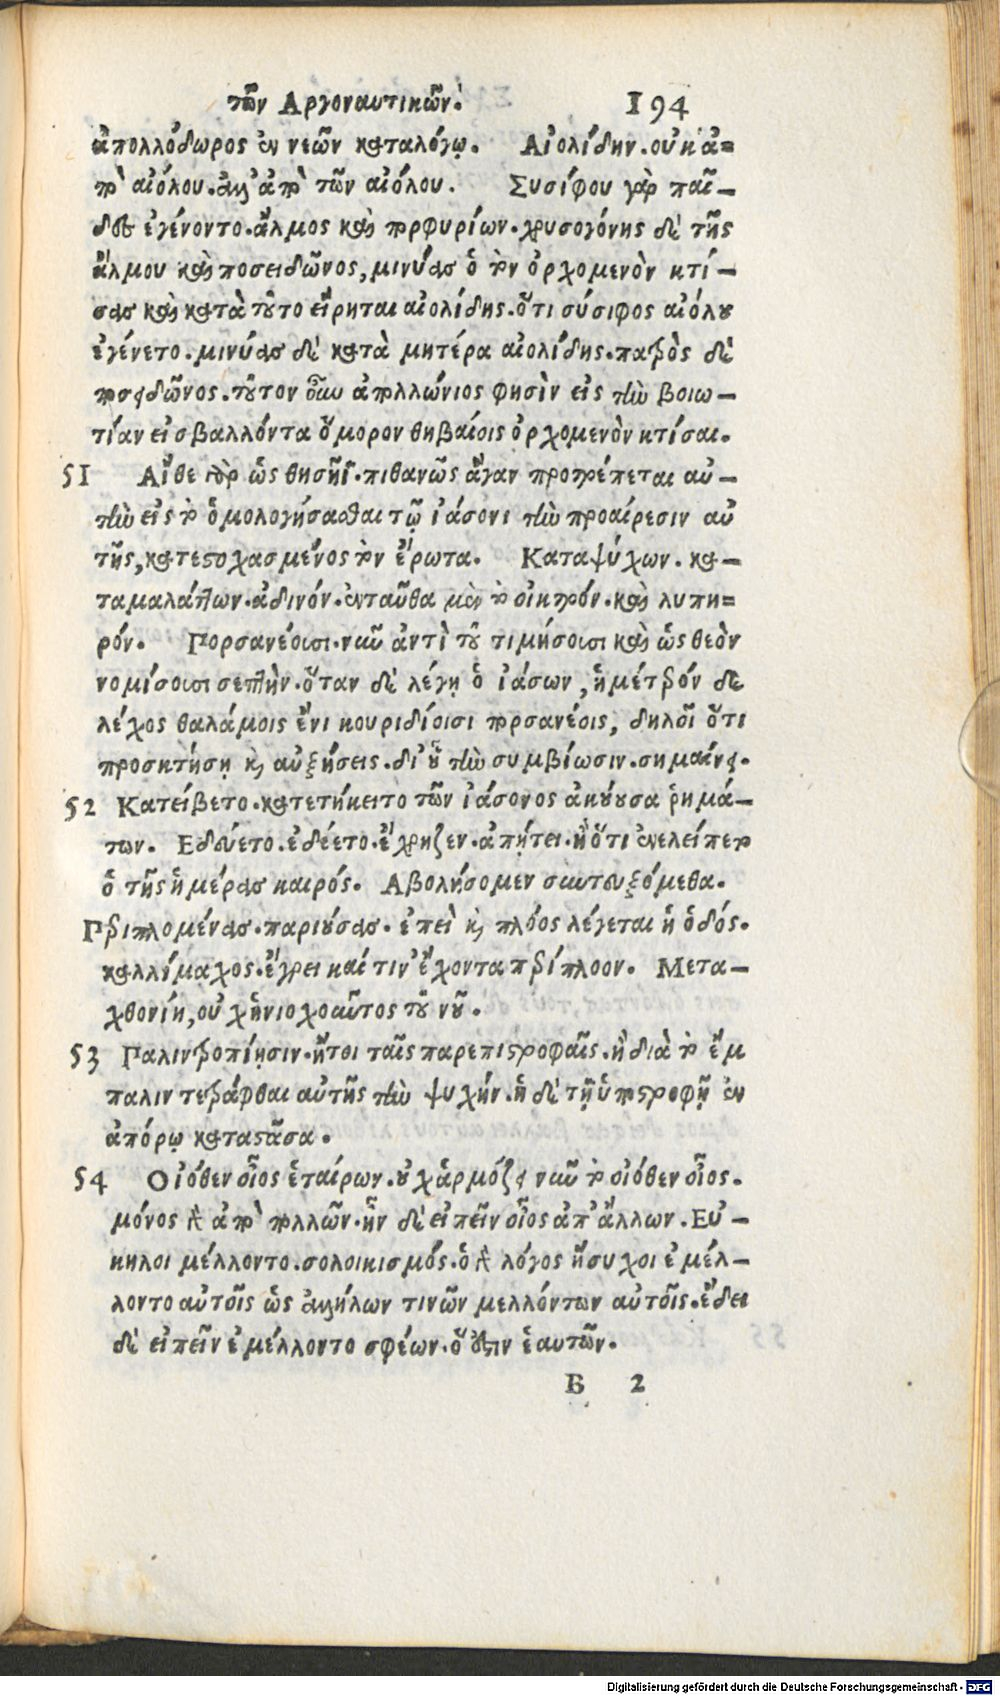 τῶν Αργοναυτικῶν. 194
ἀπολλόδωρος ἐν νεῶν καταλόγῳ. Αἰολίδην. οὐκ ἀ=
πὸ αἰόλου. ἀλλ' ἀπὸ τῶν αἰόλου. Συσίφου γὰρ παῖ–
δες ἐγένοντο. ἄλμος καὶ πορφυρίων. χρυσογόνης δὲ τῆς
ἄλμου καὶ ποσειδῶνος, μινύας ὁ τὸν ὀρχομενὸν κτί–
σας καὶ κατὰ τοῦτο εἴρηται αἰολίδης. ὅτι σύσιφος αἰόλου
ἐγένετο. μινύας δὲ κατὰ μητέρα αἰολίδης. πατρὸς δὲ
ποσειδῶνος. τοῦτον οὖν ἀπολλώνιος φησὶν εἰς τὴν βοιω–
τίαν εἰσβαλλόντα ὅμορον θηβαίοις ὀρχομενὸν κτίσαι.
51 Αἴθε γὰρ ὡς θησῆϊ. πιθανῶς ἄγαν προτρέπεται αὐ–
τὴν εἰς τὸ ὁμολογήσασθαι τῷ ἰάσονι τὴν προαίρεσιν αὐ
τῆς, κατεστοχασμένος τὸν ἔρωτα. Καταψύχων. κα–
ταμαλάττων. ἀδινόν. ἐνταῦθα μὲν τὸ οἰκτρόν. καὶ λυπη=
ρόν. Πορσανέουσι. νῦν ἀντὶ τοῦ τιμήσουσι καὶ ὡς θεὸν
νομίσουσι σεπτὴν. ὅταν δὲ λέγῃ ὁ ἰάσων, ἡμέτρόν δὲ
λέχος θαλάμοις ἔνι κουριδίοισι πορσανέοις, δηλοῖ ὅτι
προσκτήσῃ καὶ αὐξήσεις. δι' οὗ τὴν συμβίωσιν. σημαίνει.
52 Κατείβετο. κατετήκετο τῶν ἰάσονος ἀκούουσα ῥημά–
των. Εδεύετο. ἐδέετο. ἔχρηζεν. ἀπῄτει. ἢ ὅτι ἐνελείπετο
ὁ τῆς ἡμέρας καιρός. Αβολήσομεν συντευξόμεθα.
Περιπλομένας. παριούσας. ἐπεὶ καὶ πλόος λέγεται ἡ ὁδός.
καλλίμαχος. ἔγρει καί τιν' ἔχοντα περίπλοον. Μετα–
χθονίη, οὐχ ἡνιοχοαῦτος τοῦ νοῦ.
53 Παλιντροπίησιν. ἤτοι ταῖς παρεπιστροφαῖς. ἢ διὰ τὸ ἔμ
παλιν τετράφθαι αὐτῆς τὴν ψυχήν. ἢ δὲ τῇ ὑποστροφῇ ἐν
ἀπόρῳ καταστᾶσα.
54 Οἰόθεν οἶος ἑταίρων. οὐχ ἁρμόζει νῦν τὸ οἰόθεν οἶος.
μόνος γὰρ ἀπὸ πολλῶν. ἦν δὲ εἰπεῖν οἶος ἀπ' ἄλλων. Εὔ–
κηλοι μέλλοντο. σολοικισμός. ὁ γὰρ λόγος ἥσυχοι ἐμέλ–
λοντο αὐτοῖς ὡς εὐκήλων τινῶν μελλόντων αὐτοῖς. ἔδει
δὲ εἰπεῖν ἐμέλλοντο σφέων. ὅ ἐστιν ἑαυτῶν.
B 2
Digitalisierung gefördert durch die Deutsche Forschungsgemeinschaft - DFG